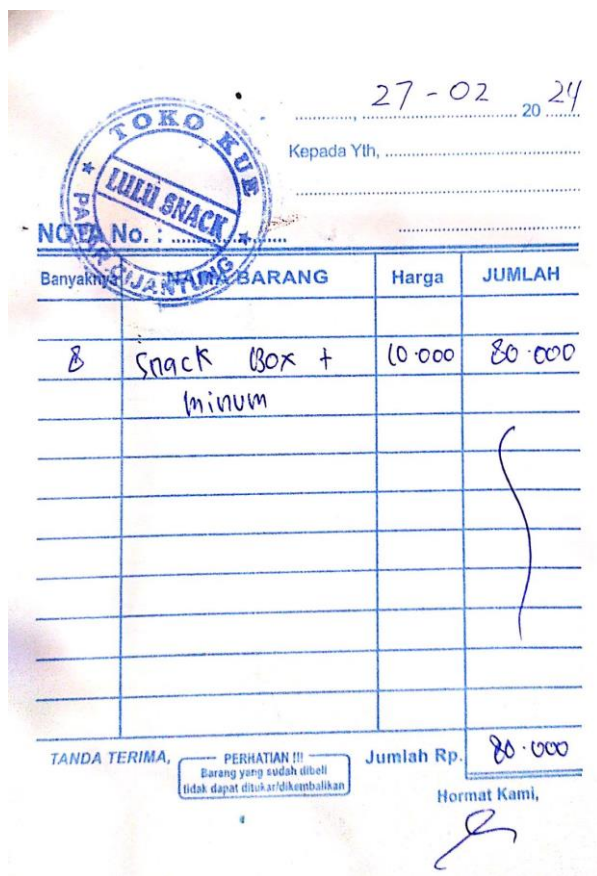 27 - 02 20 24
Kepada Yth,
TOKO KUE
LULU SNACK
PASIR CIJANTUNG
NOTA No. :
Banyaknya NAMA BARANG Harga JUMLAH
8 Snack Box + 10.000 80.000
minum
TANDA TERIMA,
PERHATIAN !!!
Barang yang sudah dibeli
tidak dapat ditukar/dikembalikan
Jumlah Rp. 80.000
Hormat Kami,